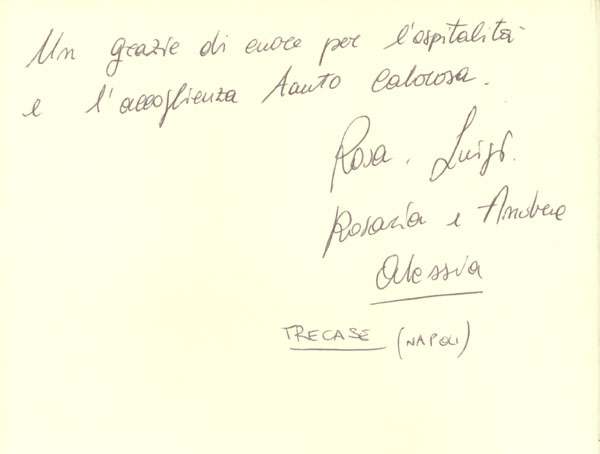 Un grazie di cuore per l'ospitalità
e l'accoglienza tanto calorosa.
Rosa. Luigi.
Rosaria e
Alessia
TRECASE (NAPOLI)